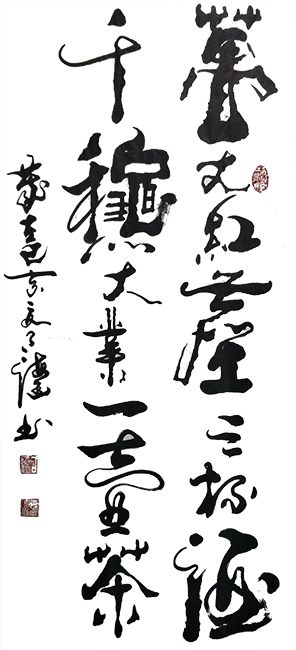 萬丈紅塵三杯酒
千龝大業一壺茶
書